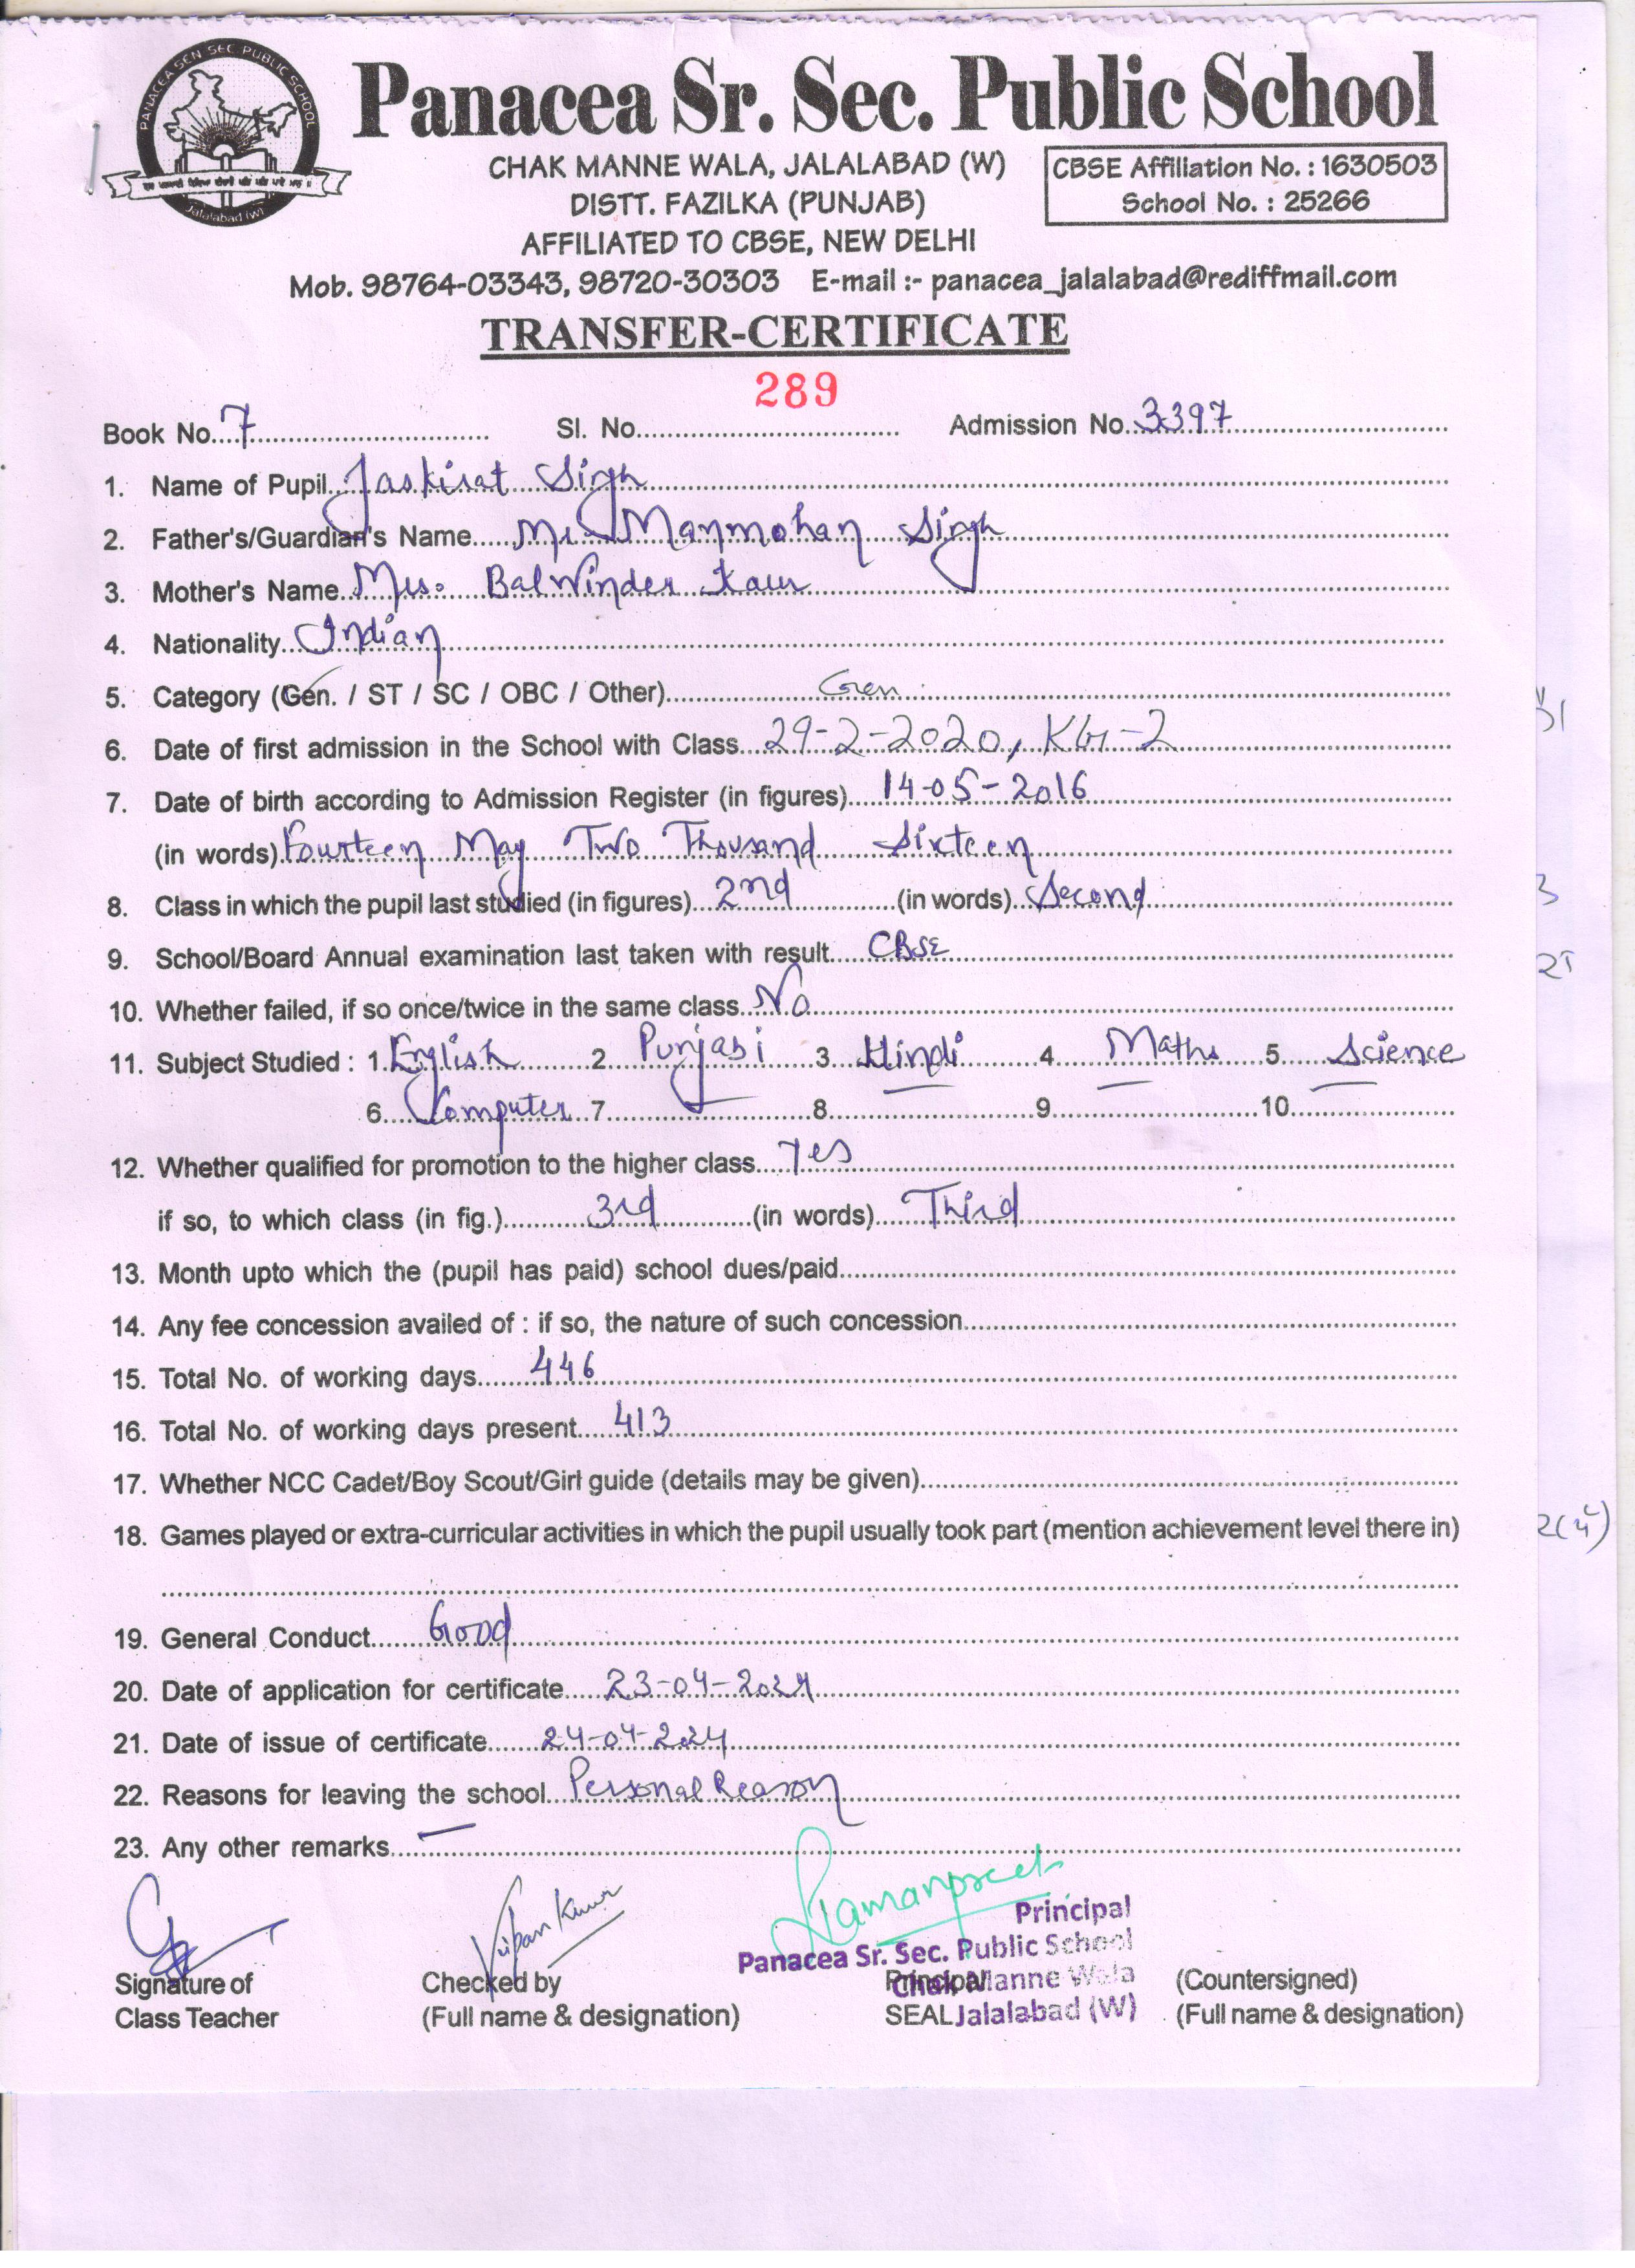 PANACEA SEN SEC PUBLIC SCHOOL
Jalalabad (W)
Panacea Sr. Sec. Public School
CHAK MANNE WALA, JALALABAD (W)
DISTT. FAZILKA (PUNJAB)
AFFILIATED TO CBSE, NEW DELHI
CBSE Affiliation No. : 1630503
School No. : 25266
Mob. 98764-03343, 98720-30303 E-mail :- panacea_jalalabad@rediffmail.com
TRANSFER-CERTIFICATE
289
Book No. 7 Sl. No. Admission No. 3397
1. Name of Pupil Jaskirat Singh
2. Father's/Guardian's Name Mr. Manmohan Singh
3. Mother's Name Mrs. Balwinder Kaur
4. Nationality Indian
5. Category (Gen. / ST / SC / OBC / Other) Gen
6. Date of first admission in the School with Class 29-2-2020, KG-2
7. Date of birth according to Admission Register (in figures) 14-05-2016
(in words) Fourteen May Two Thousand Sixteen
8. Class in which the pupil last studied (in figures) 2nd (in words) Second
9. School/Board Annual examination last taken with result CBSE
10. Whether failed, if so once/twice in the same class No
11. Subject Studied : 1. English 2 Punjabi 3 Hindi 4 Maths 5 Science
6 Computer 7 8 9 10
12. Whether qualified for promotion to the higher class Yes
if so, to which class (in fig.) 3rd (in words) Third
13. Month upto which the (pupil has paid) school dues/paid
14. Any fee concession availed of : if so, the nature of such concession
15. Total No. of working days 446
16. Total No. of working days present 413
17. Whether NCC Cadet/Boy Scout/Girl guide (details may be given)
18. Games played or extra-curricular activities in which the pupil usually took part (mention achievement level there in)
19. General Conduct Good
20. Date of application for certificate 23-04-2024
21. Date of issue of certificate 24-04-2024
22. Reasons for leaving the school Personal Reason
23. Any other remarks —
Ramanpreet
Principal
Panacea Sr. Sec. Public School
Chak Manne Wala
Jalalabad (W)
Signature of Checked by Principal (Countersigned)
Class Teacher (Full name & designation) SEAL (Full name & designation)